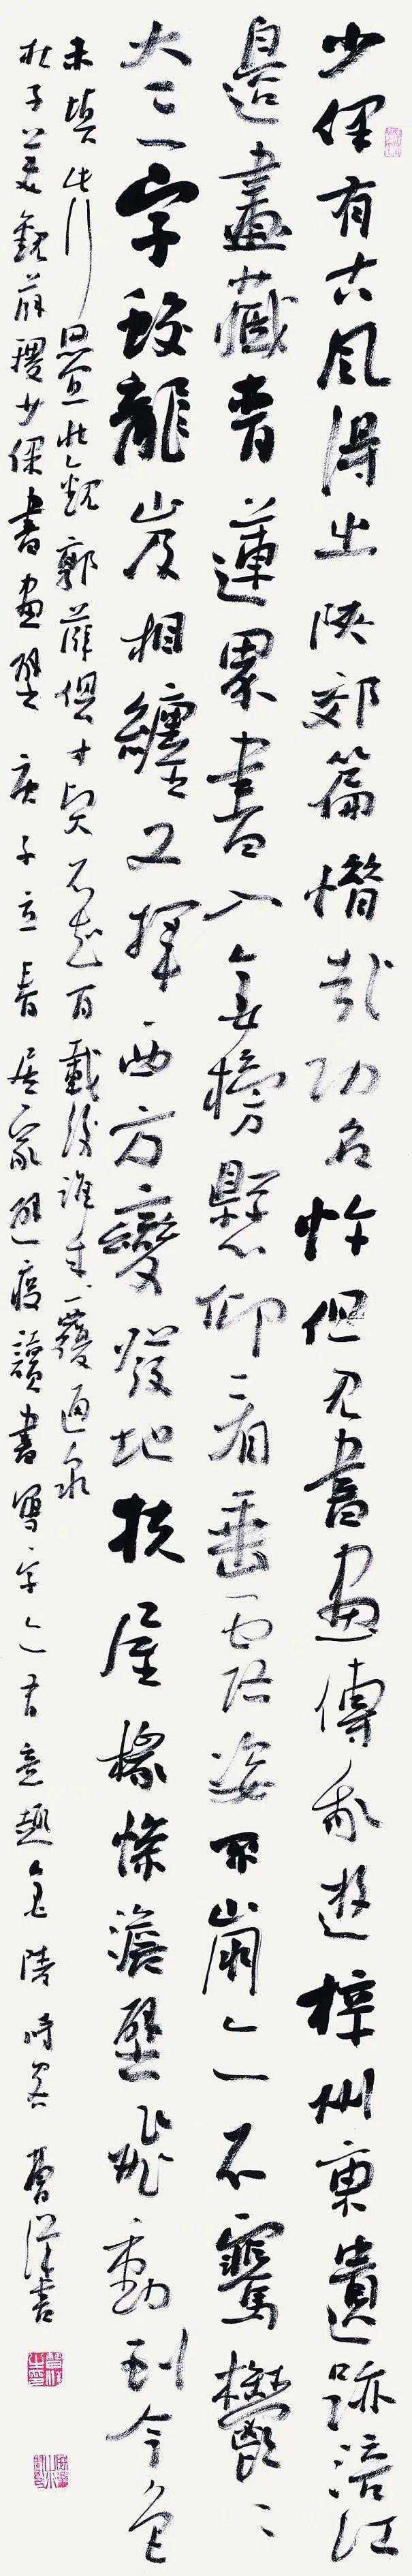 少保有古風得之陝郊篇惜哉功名忤但見書畫傳我遊梓州東遺跡涪江
邊畫藏青蓮界書入金榜懸仰看垂露姿不崩亦不騫鬱〻
大三字蛟龍岌相纏又揮西方變發地扶屋椽慘澹壁飛動到今色
未填此行疊壯觀郭薛俱才賢不知百載後誰來覆通泉
杜子美觀薛稷少保書畫壁 庚子立春居家避疫讀書寫字亦有意趣金陵 曹洋書